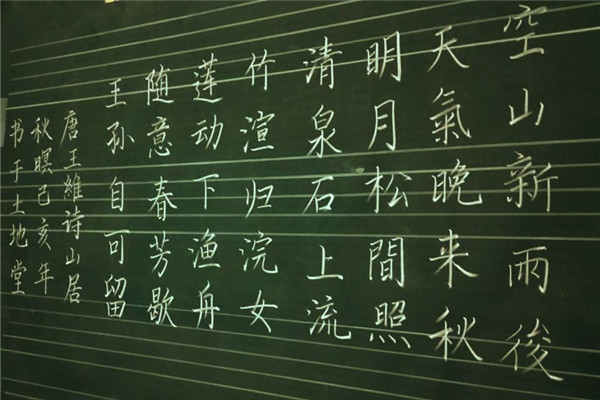 空山新雨後
天氣晚来秋
明月松間照
清泉石上流
竹渲归浣女
莲动下渔舟
随意春芳歇
王孙自可留
唐王維詩山居
秋暝己亥年
书于土地堂